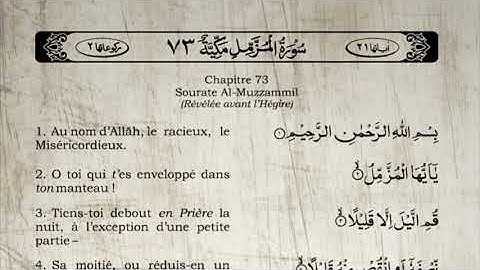 اٰیاتها ٢١ سُوْرَةُ الْمُزَّمِّلِ مَكِّيَّةٌ ٧٣ ركوعاتها ٢
Chapitre 73
Sourate Al-Muzzammil
(Révélée avant l'Hégire)
1. Au nom d'Allāh, le racieux, le
Miséricordieux.
بِسْمِ اللّٰهِ الرَّحْمٰنِ الرَّحِيْمِ ١
2. O toi qui t'es enveloppé dans
ton manteau !
يٰۤاَيُّهَا الْمُزَّمِّلُ ٢
3. Tiens-toi debout en Prière la
nuit, à l'exception d'une petite
partie–
قُمِ الَّيْلَ اِلَّا قَلِيْلًا ٣
4. Sa moitié, ou réduis-en un